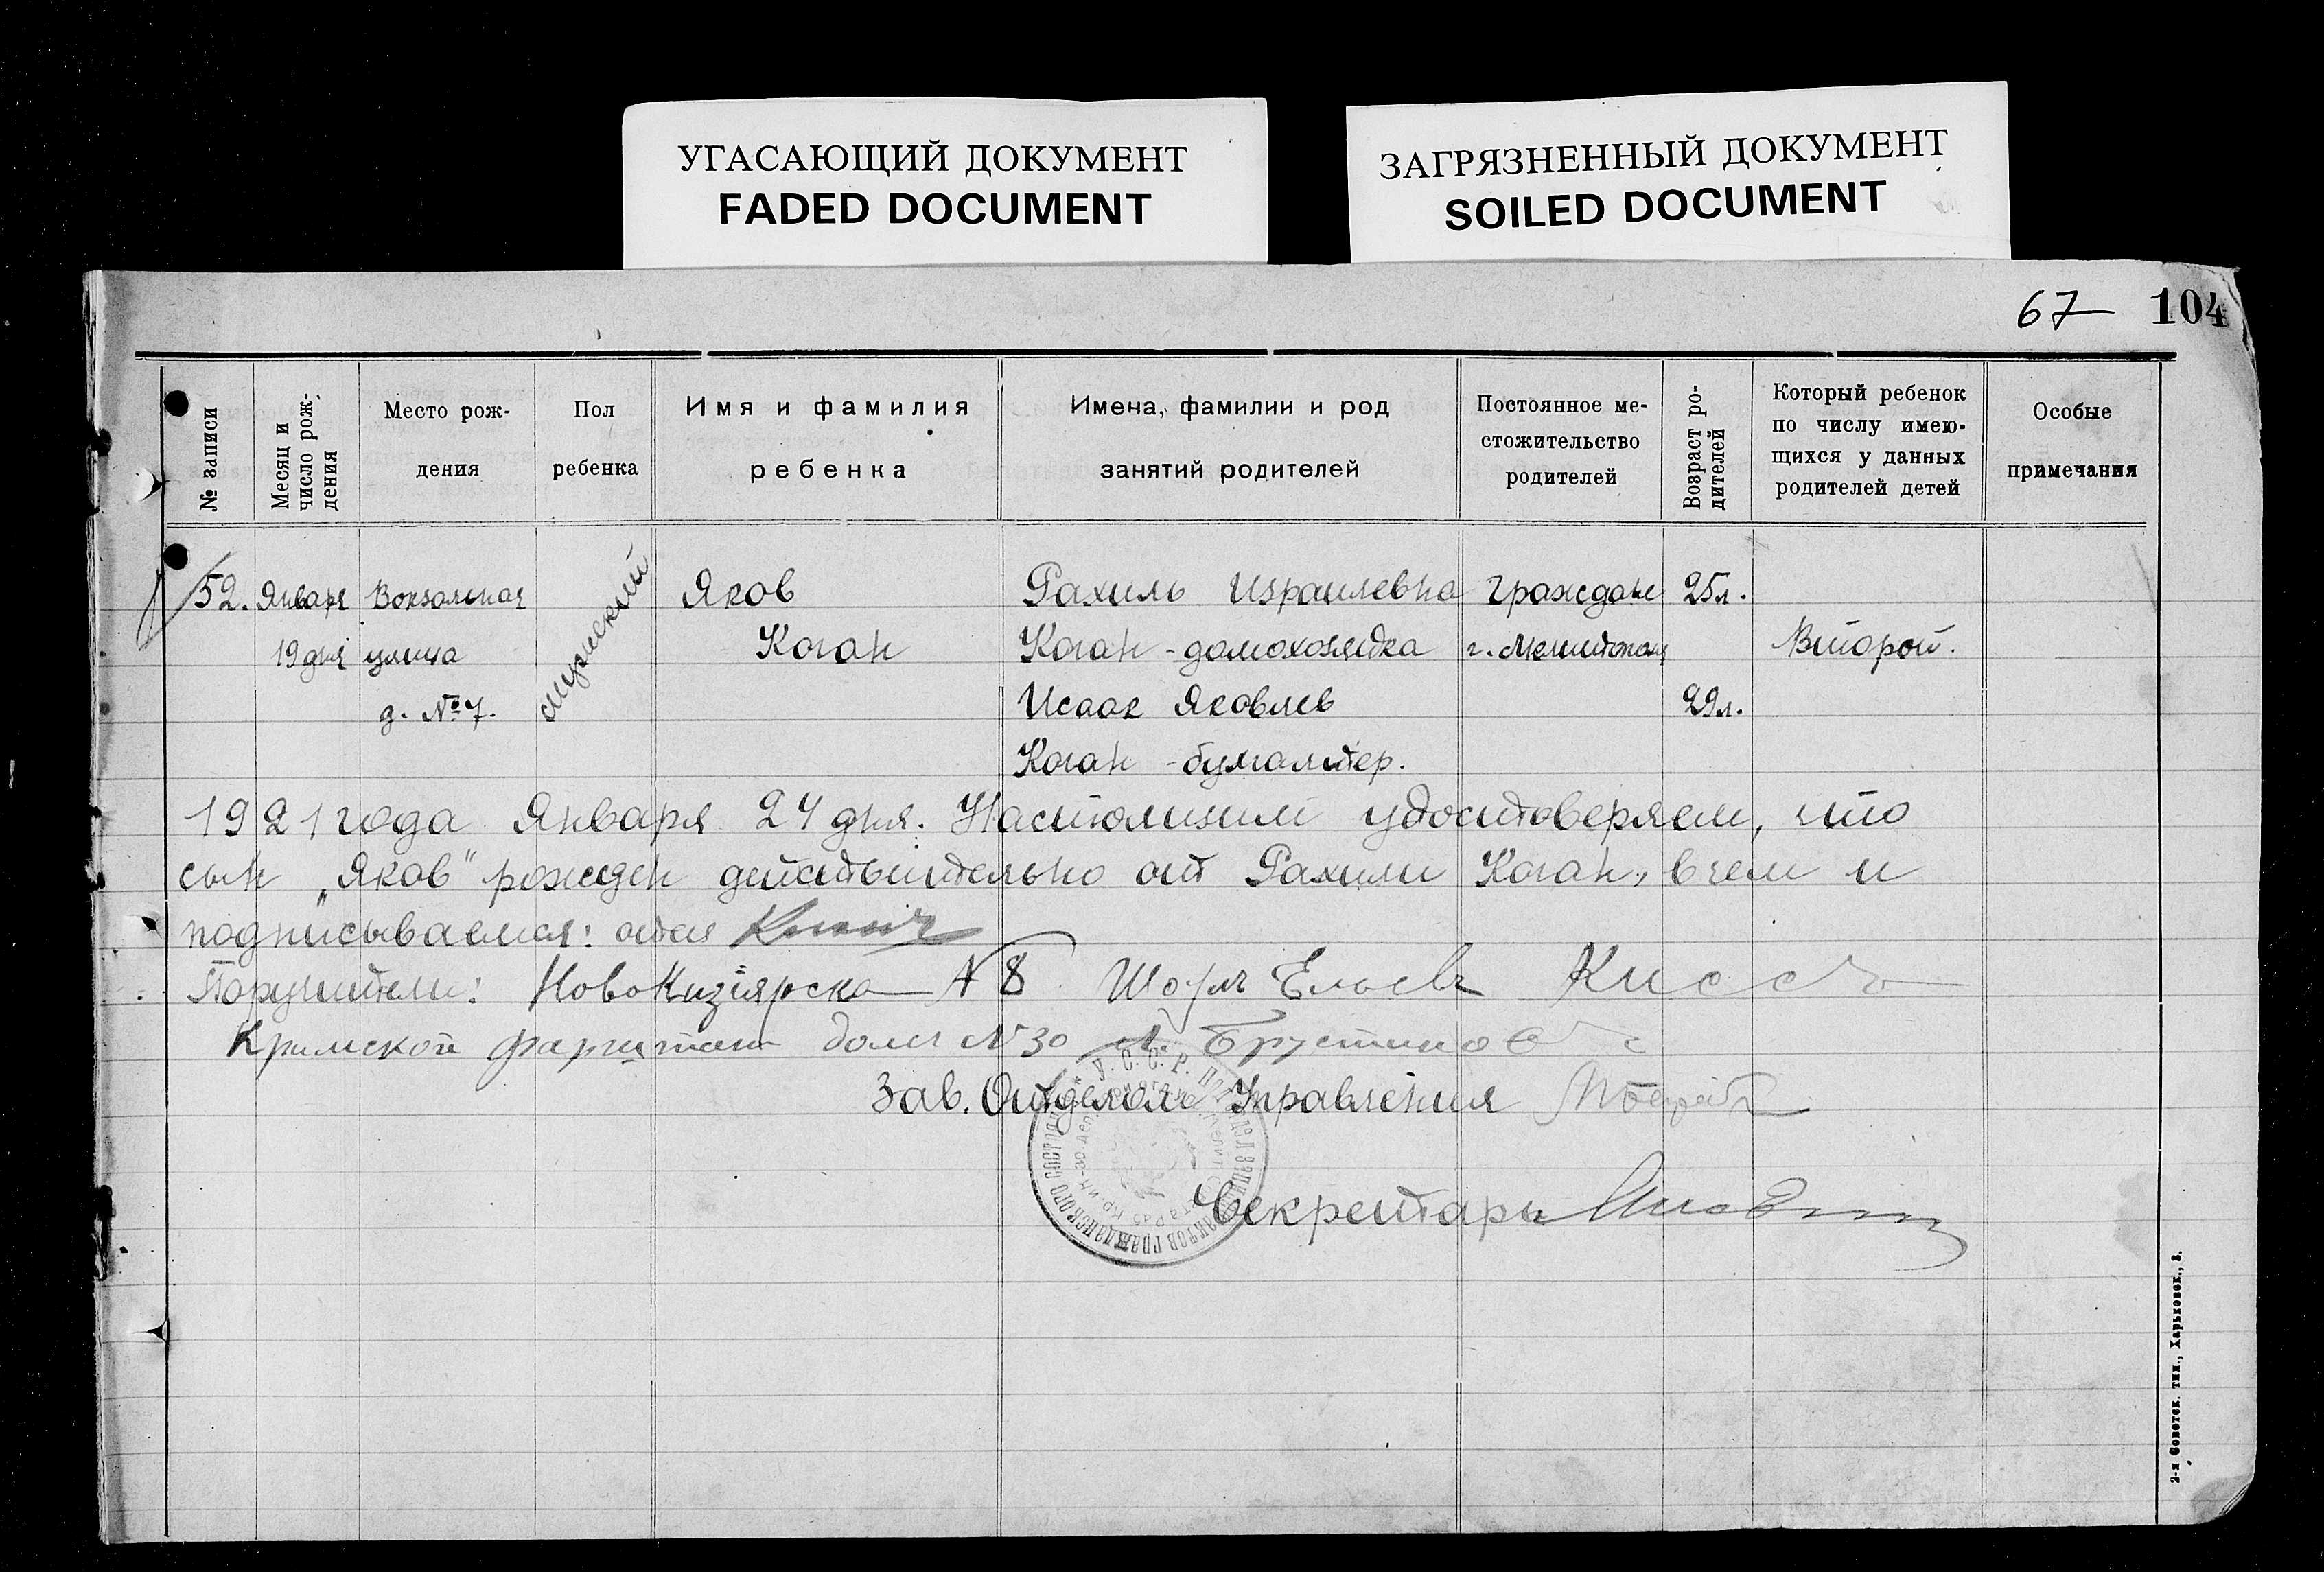 УГАСАЮЩИЙ ДОКУМЕНТ
FADED DOCUMENT
ЗАГРЯЗНЕННЫЙ ДОКУМЕНТ
SOILED DOCUMENT
67 104
№ записи
Месяц и
число рож-
дения
Место рож-
дения
Пол
ребенка
Имя и фамилия
ребенка
Имена, фамилии и род
занятий родителей
Постоянное ме-
стожительство
родителей
Возраст ро-
дителей
Который ребенок
по числу имею-
щихся у данных
родителей детей
Особые
примечания
52.
Января
19 дня
Вокзальная
улица
д. № 7.
мужской
Яков
Коган
Рахиль Израилевна
Коган - домохозяйка
Исаак Яковлев
Коган - бухгалтер.
Граждане
г. Мелитополя
25 л.
29 л.
Второй.
1921 года Января 24 дня. Настоящим удостоверяем, что
сын „Яков" рожден действительно от Рахили Коган, в чем и
подписываемся: отец
Поручители: НовоКизіярска N 8 Ельевъ Киссъ
Кримской дом N 30
Зав. Отделом Управления
Секретарь
У.С.С.Р.
2-я Советск. тип., Харьковск., 3.